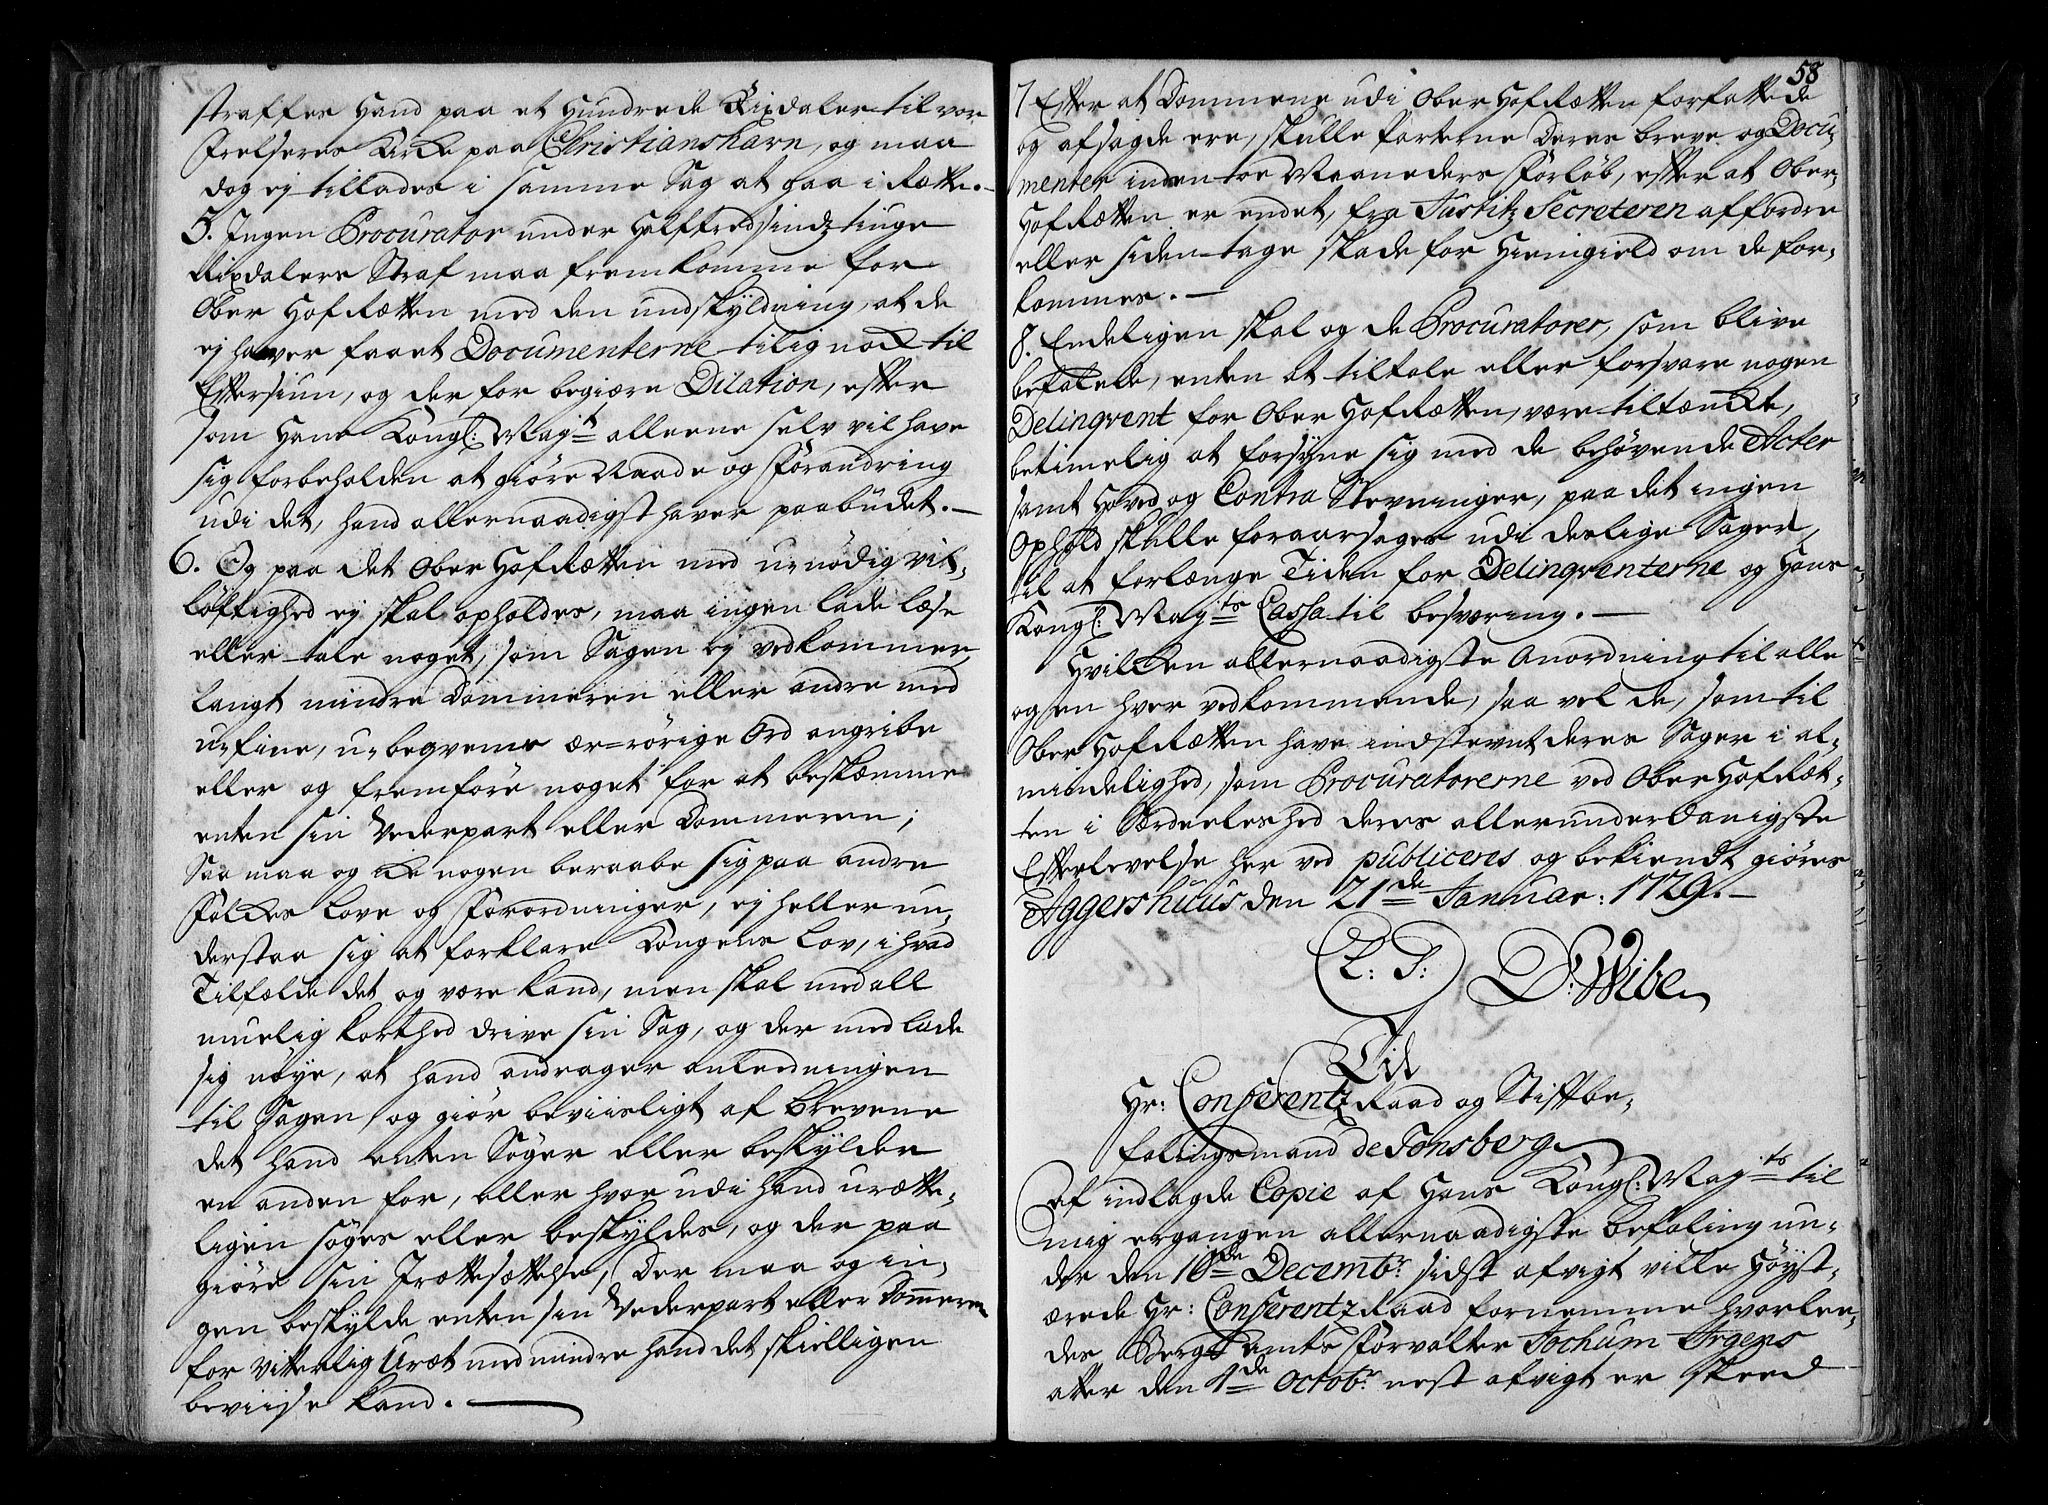 straffes Hand paa et Hundrede Rixdaler til vor
Frelseres Kircke paa Christianshavn, og maa
dog ej tillades i samme Sag at gaa i Rette.
5. Ingen Procurator under Halftredsindz tiuge
Rixdalers Straf maa fremkomme for
Ober Hof Rætten med den undskÿldning, at de
ej haver faaet Documenterne tilig nock til
Eftersiun, og der for begiære Dilation, efter
som Hans Kongl: Mayt alleene self vil have
sig forbeholden at giöre Naade og Forandring
udi det, hand allernaadigst haver paabudet.
6. Og paa det Ober Hof Rætten med u-nödig vit-
löftighed ej skal opholdes, maa ingen lade læse
eller tale noget, som Sagen ej vedkommer,
langt mindre Dommeren eller andre med
u-fine, u-beqvems ær=rörige Ord angribe
eller og fremföre noget for at beskæmme
enten sin Vederpart eller Dommeren;
Saa maa og icke nogen beraabe sig paa andre
Folckes Love og Forordninger, ej heller un-
derstaa sig at forklare Kongens Lov, i hvad
Tilfælde det og være kand, men skal med all
muelig korthed drive sin Sag, og der med lade
sig nöye, at hand andrager anledningen
til Sagen, og giör beviisligt af Brevene
det hand enten Söger eller beskÿlder
en anden for, eller hvor udi hand urætte-
ligen söges eller beskÿldes, og der paa
giöre sin Irættesættelse, Der maa og in-
gen beskÿlde enten sin Vederpart eller Dom̅eren
for vitterlig Uræt med mindre hand det skielligen
beviise kand.
58
7 Efter at Dommene udi Ober Hof Rætten forfattede
og afsagde ere, skulle Parterne Deres breve og Docu-
menter inden toe Maaneders Forlöb, efter at Ober-
Hof Rætten er endet, fra Justitz Secreteren affordre
eller siden tage skade for Hiemgield om de for-
kommes.
8. Endeligen skal og de Procuratorer, som blive
befalede, enten at tiltale eller forsvare nogen
Delinqvent for Ober Hof Rætten, være tiltænckte,
betimelig at forsÿne sig med de behövende Acter
samt Hoved og Contra Stevninger, paa det ingen
Ophold skulle foraarsages udi deslige Sager,
til at forlænge Tiden for Delinqventerne og Hans
Kongl: Mayts Cassa til besværing.
Hvilcken allernaadigste Anordning til alle
og en hver vedkommende, saa vel de, som til
Ober Hof Rætten have indstevnt deres Sager i al-
mindelighed, som Procuratorerne ved Ober Hof Ræt-
ten i Særdeeleshed deres allerunderdanigste
Efterlevelse her ved publiceres og bekiendt giöres
Aggershuus den 21de Januar: 1729.
L: S: D: Wibe
Til
Hr: Conferentz Raad og Stiftbe-
falingsmand de Tonsberg
Af indlagde Copie af Hans Kongl: Mayts til
mig ergangen allernaadigste Befaling un-
der den 16de Decembr: sidst afvigt ville Höÿst-
ærede Hr: Conferentz Raad fornemme hvorlee-
des Berg Amts Forvalter Jochum Irgens
atter den 4de Octobr: nest afvigt er skeed